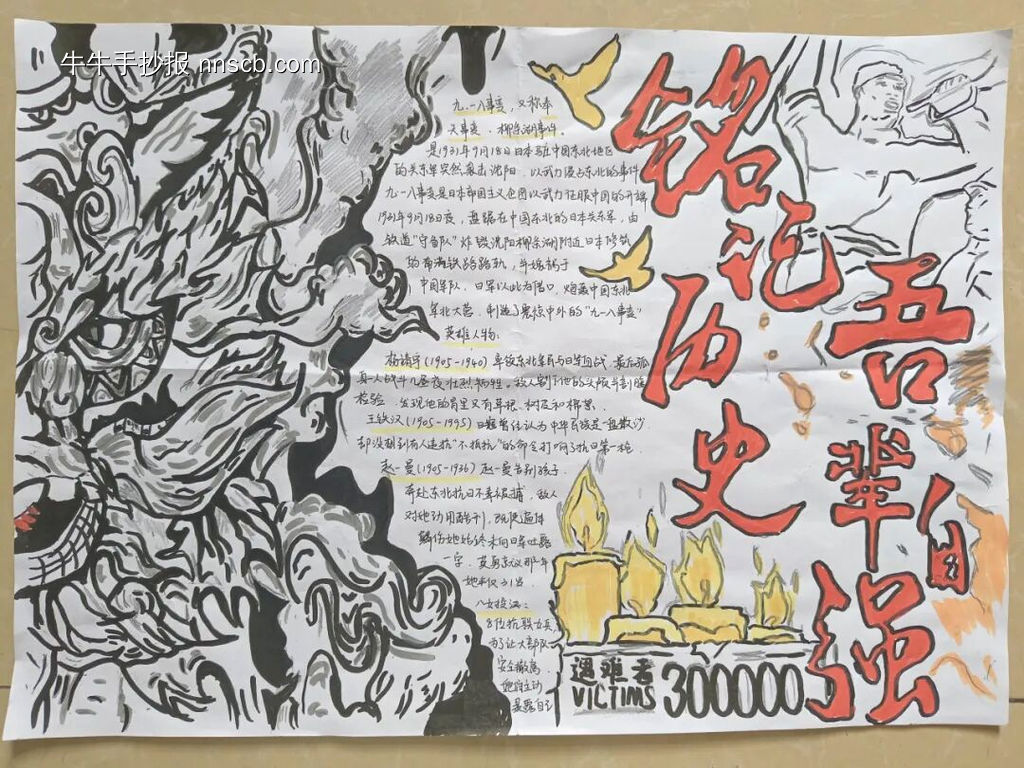 牛牛手抄报 nnscb.com
铭记历史
吾辈自强
九.一八事变，又称奉
天事变、柳条湖事件。
是1931年9月18日日本驻在中国东北地区
的关东军突然袭击沈阳，以武力侵占东北的事件
九一八事变是日本帝国主义企图以武力征服中国的开端
1931年9月18日夜，盘踞在中国东北的日本关东军，由
铁道“守备队”炸毁沈阳柳条湖附近日本修筑
的南满铁路路轨，并嫁祸于
中国军队，日军以此为借口，炮轰中国东北
军北大营，制造了震惊中外的“九一八事变”
英雄人物：
杨靖宇(1905-1940) 率领东北军民与日军血战，最后孤
真人战斗几昼夜壮烈牺牲，敌人割下他的头颅并剖腹
检验，发现他的胃里只有草根、树皮和棉絮。
王铁汉(1905-1995) 日籍曾经认为中华民族是一盘散沙
却没想到有人违抗“不抵抗”的命令打响了抗日第一枪
赵一曼(1905-1936) 赵一曼告别孩子
奔赴东北抗日不幸被捕，敌人
对她动用酷刑，
她始终未向日军吐露
一字，英勇就义那年
她年仅31岁
八女投江：
8位抗联女兵，
为了让大部队
安全撤离，
她们主动
暴露自己
遇难者
VICTIMS 300000